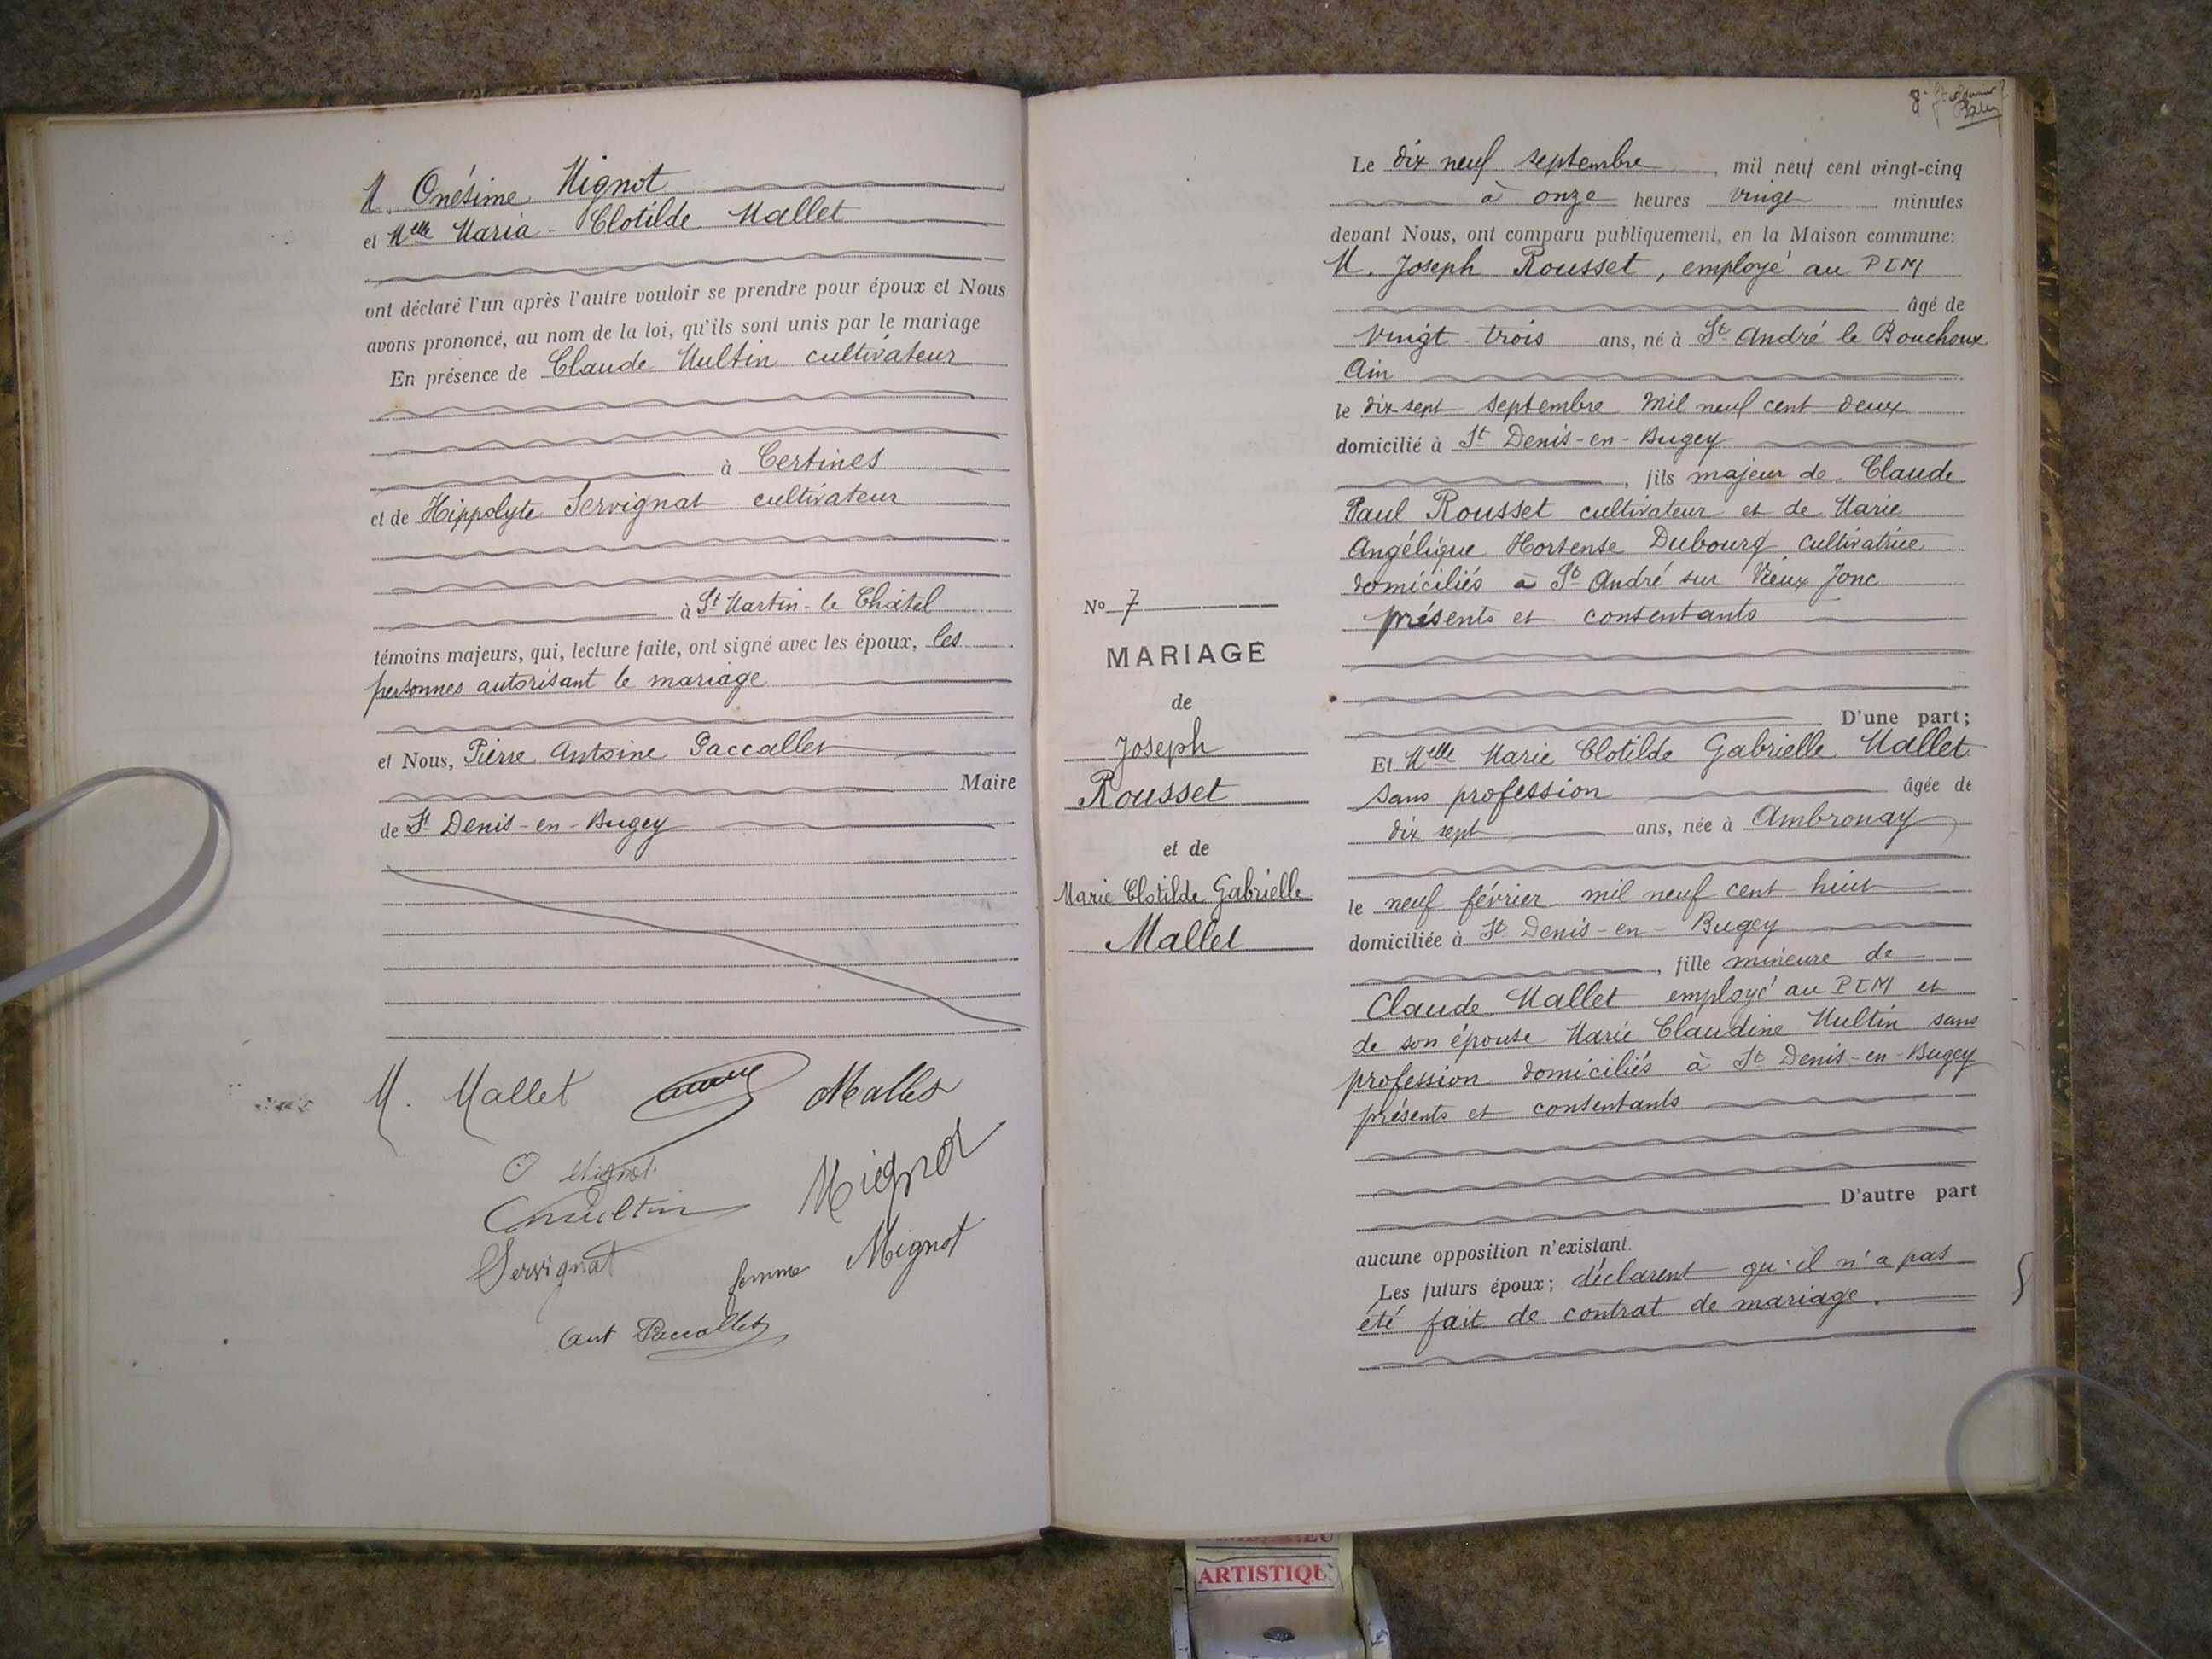 M. Onésime Mignot
et Melle Maria - Clotilde Mallet
ont déclaré l'un après l'autre vouloir se prendre pour époux et Nous
avons prononcé, au nom de la loi, qu'ils sont unis par le mariage
En présence de Claude Multin cultivateur
à Certines
et de Hippolyte Servignat cultivateur
à St Martin-le Châtel
témoins majeurs, qui, lecture faite, ont signé avec les époux, les
personnes autorisant le mariage
et Nous, Pierre Antoine Paccallet
Maire
de St Denis-en-Bugey
M. Mallet Mallet
O Mignot
Mignot
C multin
Servignat
femme Mignot
Ant Paccallet
8
Le dix neuf septembre, mil neuf cent vingt-cinq
à onze heures vingt minutes
devant Nous, ont comparu publiquement, en la Maison commune:
M. Joseph Rousset, employé au PLM
âgé de
vingt-trois ans, né à St André le Bouchoux
Ain
le dix sept septembre mil neuf cent deux
domicilié à St Denis-en-Bugey
, fils majeur de Claude
Paul Rousset cultivateur et de Marie
Angélique Hortense Dubourg cultivatrice
domiciliés à St André sur Vieux Jonc
présents et consentants
D'une part;
Et Melle Marie Clotilde Gabrielle Mallet
sans profession âgée de
dix sept ans, née à Ambronay
le neuf février mil neuf cent huit
domiciliée à St Denis-en-Bugey
, fille mineure de
Claude Mallet employé au PLM et
de son épouse Marie Claudine Multin sans
profession domiciliés à St Denis-en-Bugey
présents et consentants
D'autre part
aucune opposition n'existant.
Les futurs époux; déclarent qu'il n'a pas
été fait de contrat de mariage.
No 7
MARIAGE
de
Joseph
Rousset
et de
Marie Clotilde Gabrielle
Mallet
ARTISTIQU